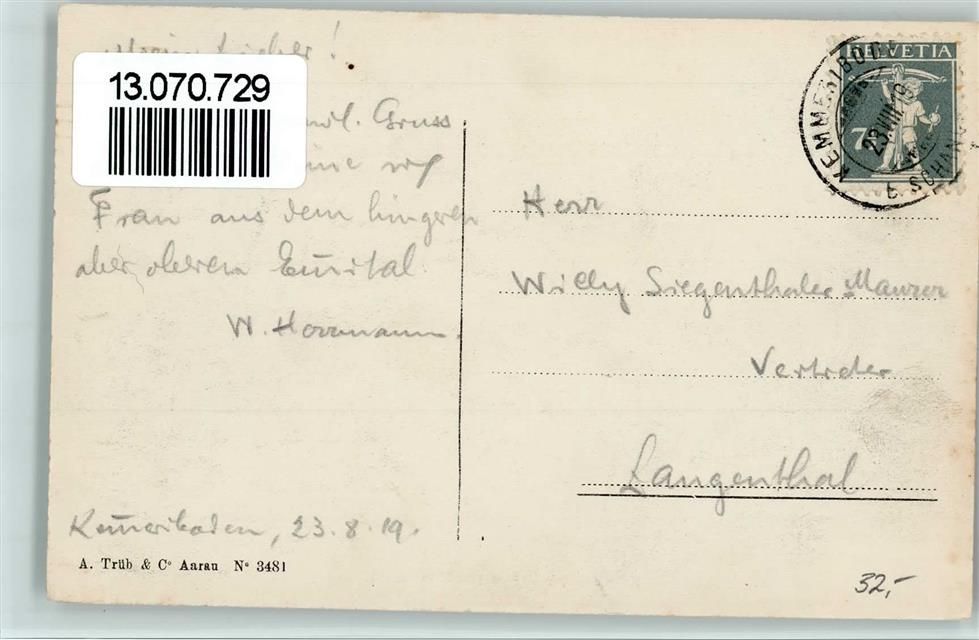 13.070.729
Gruss
Frau aus dem hingeren
aber oberen Em̄ital
W. Horrmann.
Kem̄eriboden, 23.8.19.
A. Trüb & Cº Aarau Nº 3481
HELVETIA
7
KEMMERIBODEN
23.VIII.19
b. SCHANG
Herr
Willy Siegenthaler-Maurer
Vertreter
Langenthal
32,-